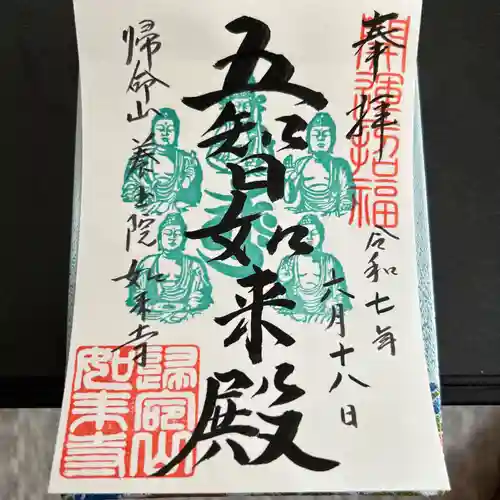 奉拝
開運招福
令和七年
六月十八日
五智如来殿
帰命山 養玉院 如来寺
歸命山
如来寺